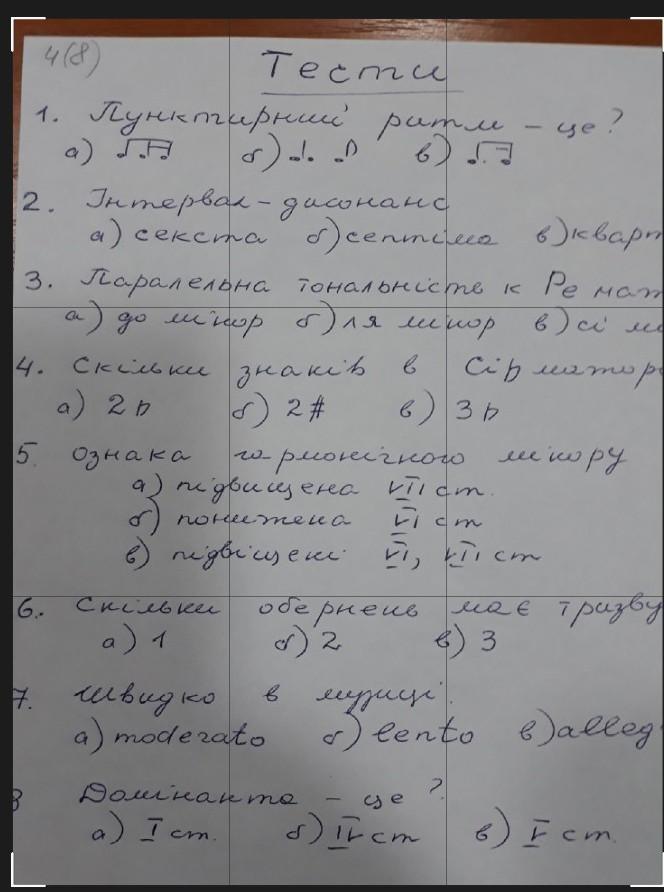 4(8)
Тести
1. Пунктирний ритм – це?
а) б) в)
2. Інтервал-дисонанс
а) секста б) септіма в) кварт
3. Паралельна тональність к Ре маж
а) до мінор б) ля мінор в) сі мі
4. Скільки знаків в Сі♭ мажор
а) 2♭ б) 2# в) 3♭
5. Ознака гармонічного мінору
а) підвищена VII ст.
б) понижена VI ст
в) підвіщені VI, VII ст
6. Скільки обернень має тризву
а) 1 б) 2 в) 3
7. Швидко в музиці.
а) moderato б) lento в) alleg
8 Домінанта – це?
а) I ст. б) IV ст в) V ст.